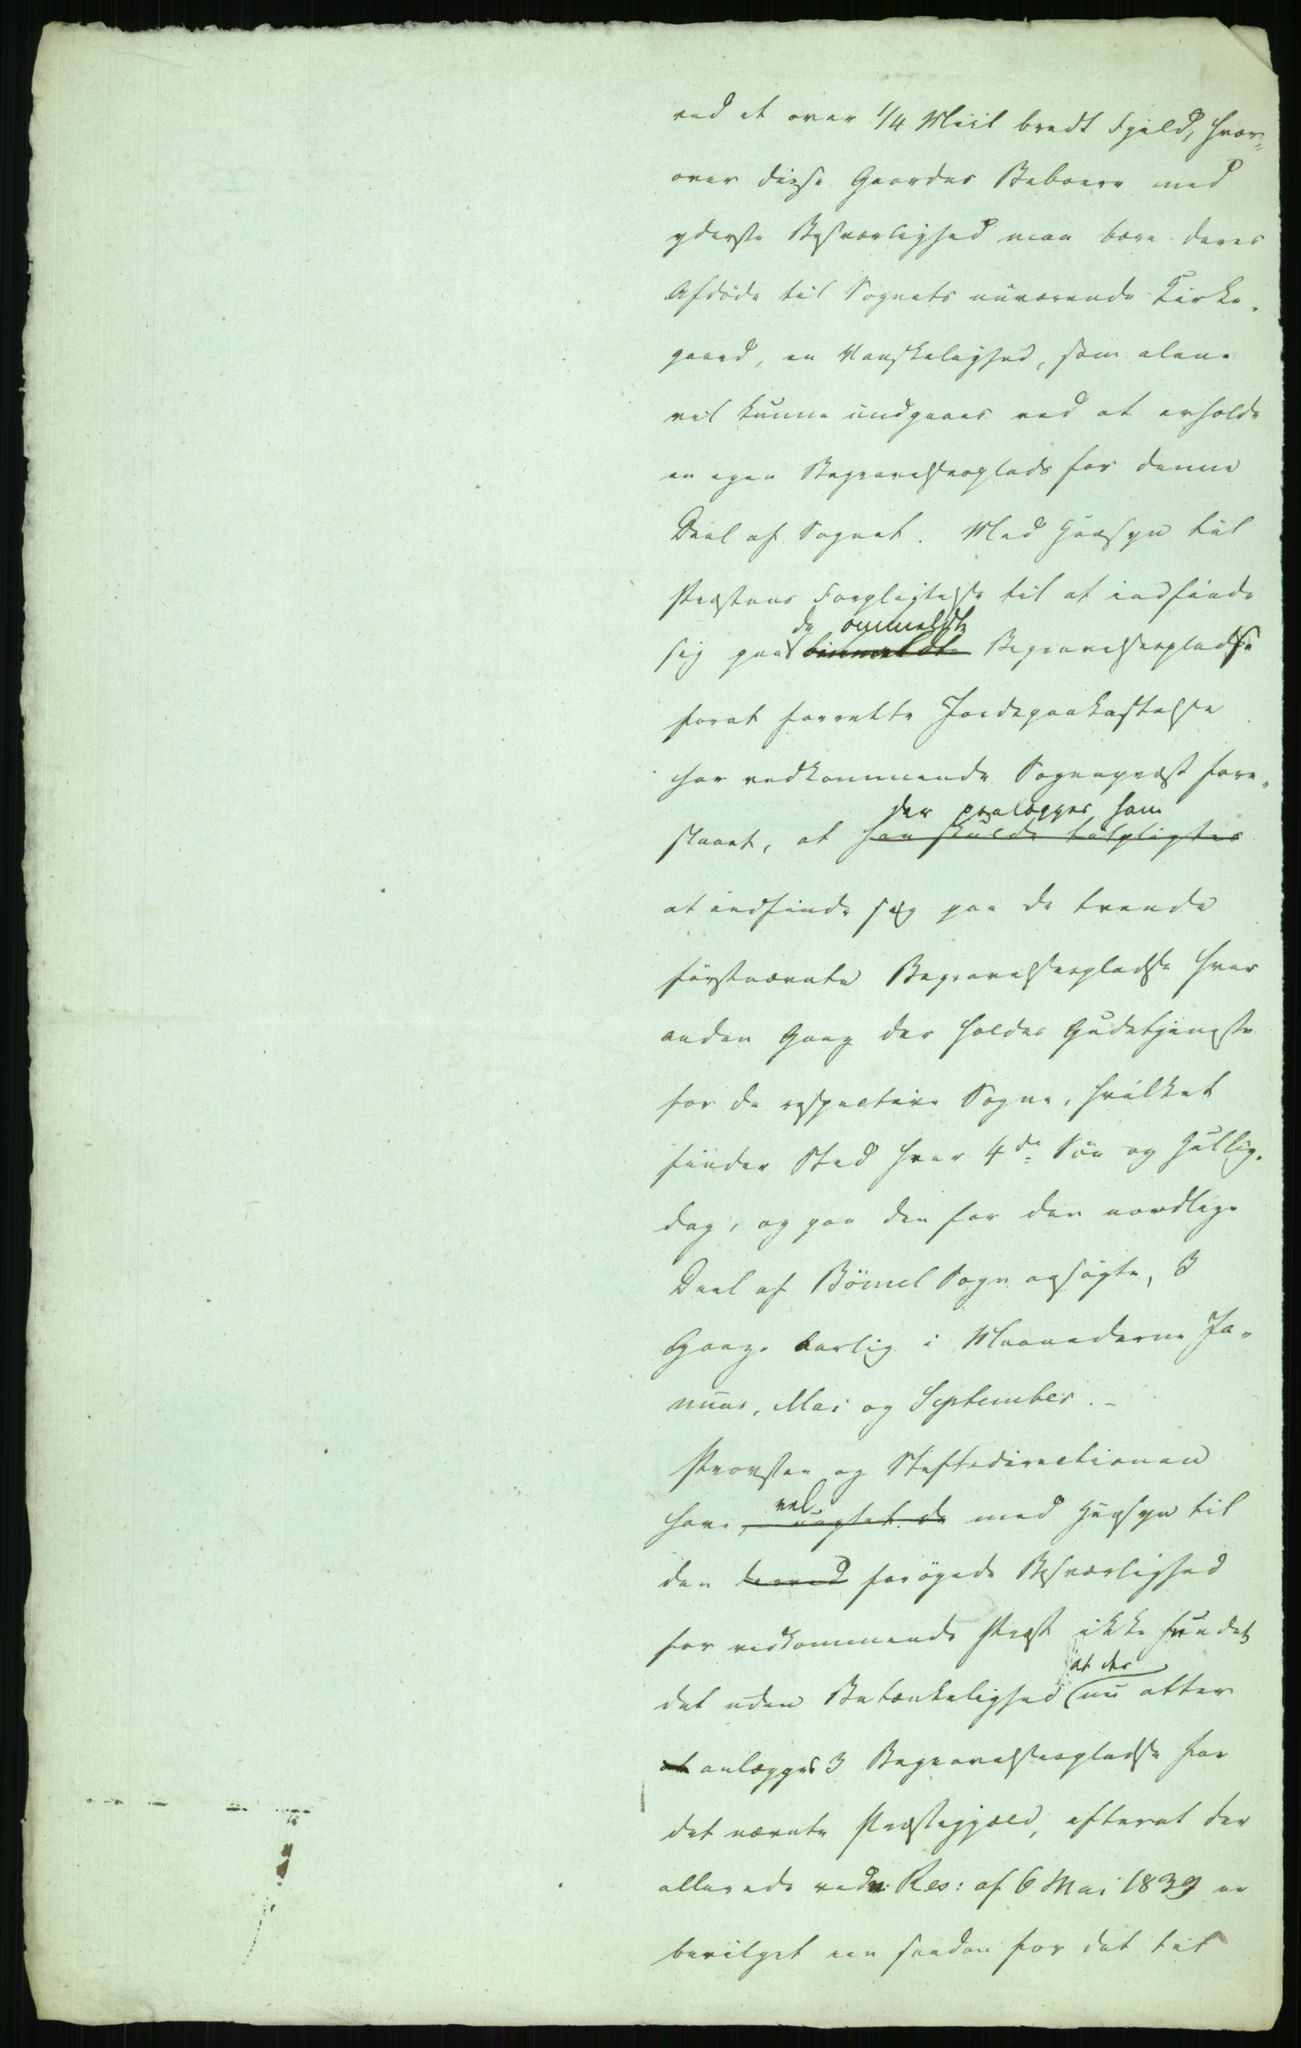 ved et over 1/4 Miil bredt Fjeld, hvor-
over disse Gaardes Beboere med
yderste Besværlighed maa bære deres
Afdøde til Sognets nuværende Kirke-
gaard, en Vanskelighed, som alene
vil kunne undgaaes ved at erholde
en egen Begravelsesplads for denne
Deel af Sognet. Med Hensyn til
Præstens Forpligtelse til at indfinde
de ommeldte
sig paa Begravelsespladse
forat forrette Jordpaakastelse
har vedkommende Sognepræst fore-
der paalægges ham
slaaet, at han skulde tilpligtes
at indfinde sig paa de tvende
førstnævnte Begravelsespladse hver
anden Gang der holdes Gudstjeneste
for de respective Sogne, hvilket
finder Sted hver 4de Søn og Hellig-
dag, og paa den for den nordlige
Deel af Bömel Sogn ansøgte, 3
Gange aarlig i Maanederne Ja-
nuar, Mai og September. -
Provsten og Stiftsdirectionen
vel
have, uagtet de med Hensyn til
den derved forøgede Besværlighed
for vedkommende Præst ikke fundet
at der
det uden Betænkelighed nu atter
at anlægges 3 Begravelsespladse for
det nævnte Præstegjæld, efterat der
allerede ved Res: af 6 Mai 1839 er
bevilget een saadan for det til